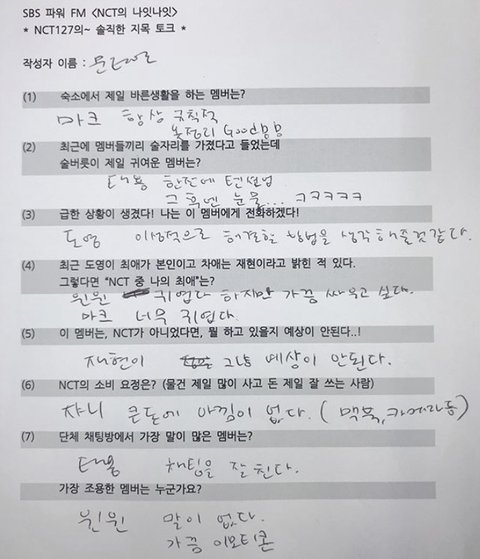 SBS 파워 FM <NCT의 나잇나잇>
* NCT127의~ 솔직한 지목 토크 *
작성자 이름 :
(1) 숙소에서 제일 바른생활을 하는 멤버는?
마크 항상 규칙적
옷정리 Good
(2) 최근에 멤버들끼리 술자리를 가졌다고 들었는데
술버릇이 제일 귀여운 멤버는?
태용 한잔에 텐션업
그 후엔 눈물... ㅋㅋㅋㅋㅋ
(3) 급한 상황이 생겼다! 나는 이 멤버에게 전화하겠다!
도영 이성적으로 해결할 방법을 생각해줄것 같다.
(4) 최근 도영이 최애가 본인이고 차애는 재현이라고 밝힌 적 있다.
그렇다면 "NCT 중 나의 최애"는?
윈윈 귀엽다 하지만 가끔 싸우고 싶다.
마크 너무 귀엽다.
(5) 이 멤버는, NCT가 아니었다면, 뭘 하고 있을지 예상이 안된다..!
재현이 그냥 예상이 안된다.
(6) NCT의 소비 요정은? (물건 제일 많이 사고 돈 제일 잘 쓰는 사람)
쟈니 큰돈에 아낌이 없다. ( 맥북, 카메라 등 )
(7) 단체 채팅방에서 가장 말이 많은 멤버는?
태용 채팅을 잘 친다.
가장 조용한 멤버는 누군가요?
윈윈 말이 없다.
가끔 이모티콘